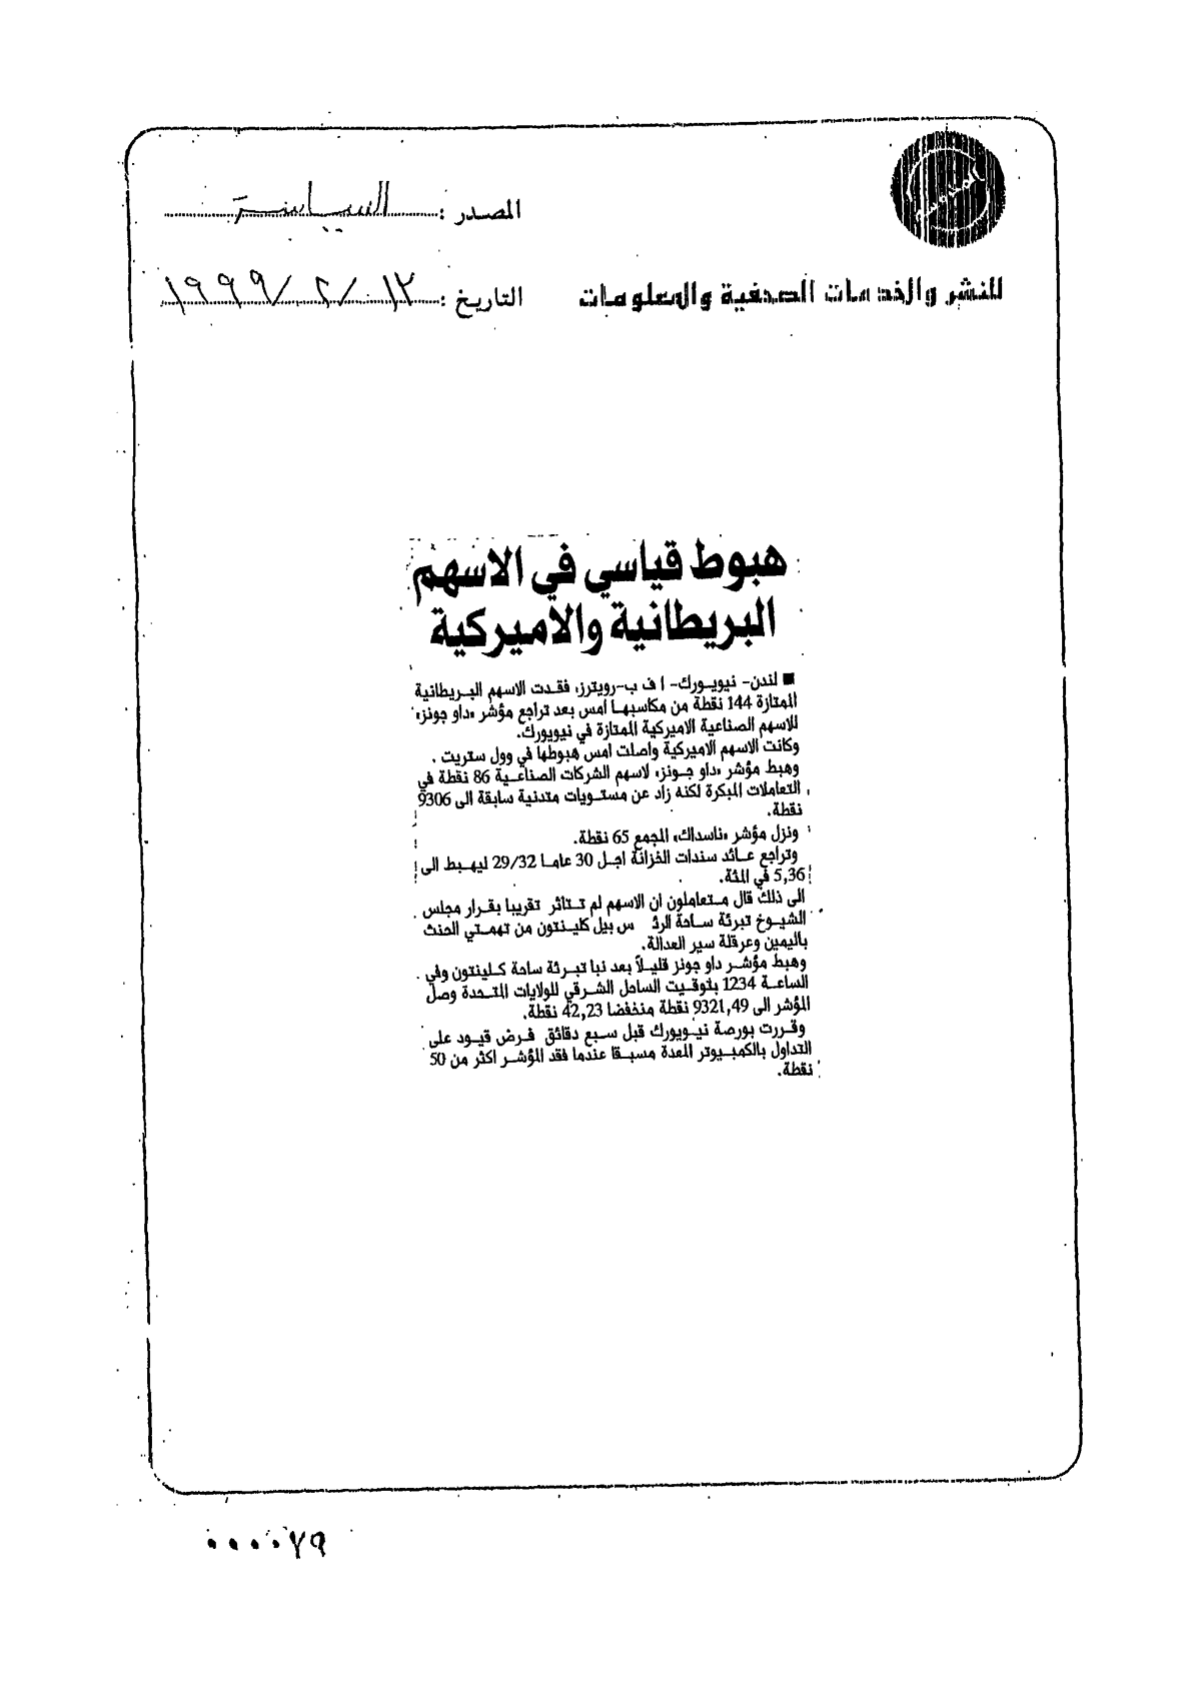 المصدر : السياسة
للنشر والخدمات الصحفية والمعلومات
التاريخ : ١٣ / ٢ / ١٩٩٩
هبوط قياسي في الاسهم
البريطانية والاميركية
■ لندن- نيويورك- ا ف ب-رويترز، فقدت الاسهم البريطانية
الممتازة 144 نقطة من مكاسبها امس بعد تراجع مؤشر «داو جونز»
للاسهم الصناعية الاميركية الممتازة في نيويورك.
وكانت الاسهم الاميركية واصلت امس هبوطها في وول ستريت .
وهبط مؤشر «داو جونز» لاسهم الشركات الصناعية 86 نقطة في
التعاملات المبكرة لكنه زاد عن مستويات متدنية سابقة الى 9306
نقطة.
ونزل مؤشر «ناسداك» المجمع 65 نقطة.
وتراجع عائد سندات الخزانة اجل 30 عاما 29/32 ليهبط الى
5,36 في المئة.
الى ذلك قال متعاملون ان الاسهم لم تتاثر تقريبا بقرار مجلس
الشيوخ تبرئة ساحة الرئ س بيل كلينتون من تهمتي الحنث
باليمين وعرقلة سير العدالة.
وهبط مؤشر داو جونز قليلاً بعد نبا تبرئة ساحة كلينتون وفي
الساعة 1234 بتوقيت الساحل الشرقي للولايات المتحدة وصل
المؤشر الى 9321,49 نقطة منخفضا 42,23 نقطة.
وقررت بورصة نيويورك قبل سبع دقائق فرض قيود على
التداول بالكمبيوتر المعدة مسبقا عندما فقد المؤشر اكثر من 50
نقطة.
٠٠٠٠٧٩